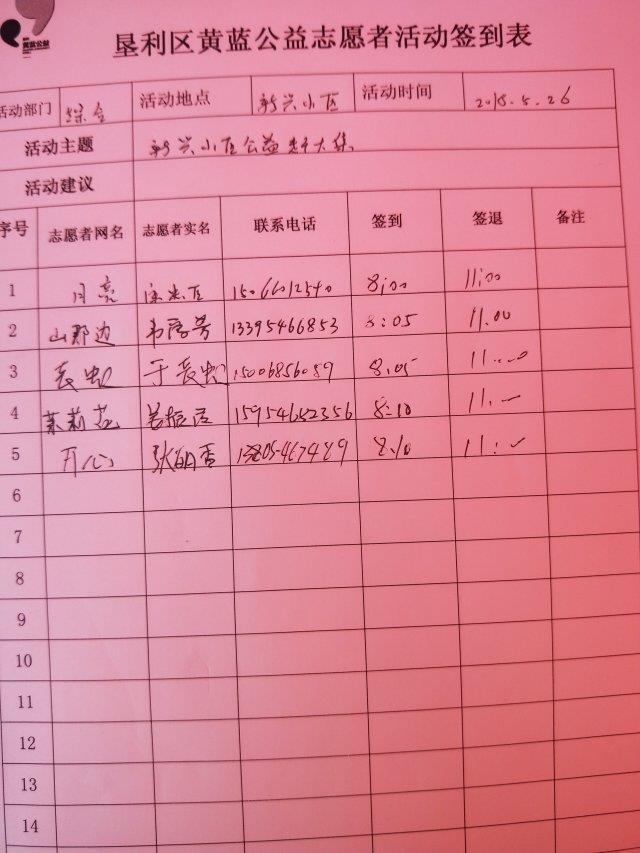 黄蓝公益
垦利区黄蓝公益志愿者活动签到表
活动部门 综合 活动地点 新兴小区 活动时间 2018.5.26
活动主题 新兴小区公益 大集
活动建议
序号 志愿者网名 志愿者实名 联系电话 签到 签退 备注
1 月亮 8:00 11:00
2 山那边 13395466853 8:05 11.00
3 于 15006856089 8.05 11.00
4 茉莉花 15954652356 8:10 11.
5 开心 张明香 8.10 11:
6
7
8
9
10
11
12
13
14